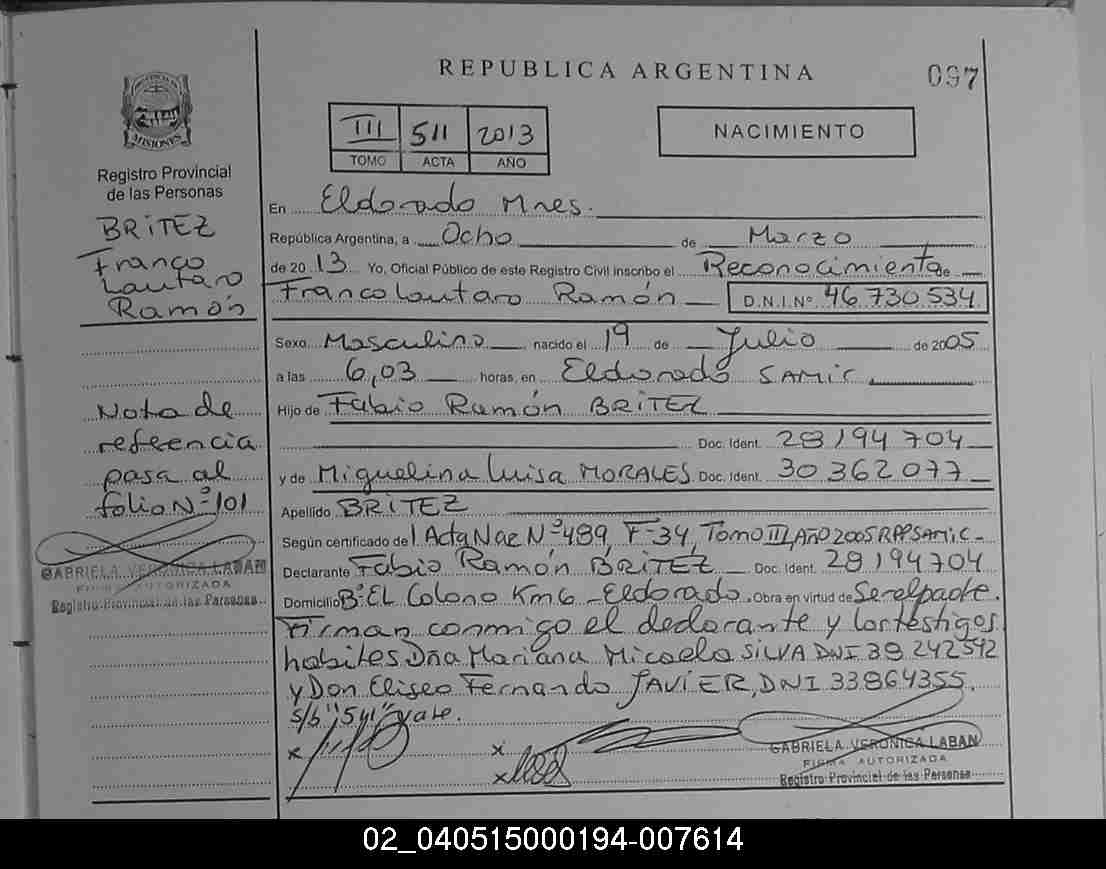 REPUBLICA ARGENTINA
097
MISIONES
Registro Provincial
de las Personas
BRITEZ
Franco
Lautaro
Ramón
Nota de
referencia
pasa al
folio Nº 101
GABRIELA VERONICA LABAN
FIRMA AUTORIZADA
Registro Provincial de las Personas
III 511 2013
TOMO ACTA AÑO
NACIMIENTO
En Eldorado Mnes.
República Argentina, a Ocho de Marzo
de 2013 Yo, Oficial Público de este Registro Civil inscribo el Reconocimiento de
Franco Lautaro Ramón D.N.I.Nº 46.730.534
Sexo Masculino nacido el 19 de Julio de 2005
a las 6,03 horas, en Eldorado SAMIC
Hijo de Fabio Ramón BRITEZ
Doc. Ident. 28194704
y de Miguelina Luisa MORALES Doc. Ident. 30362077
Apellido BRITEZ
Según certificado de Acta Nac Nº 489, F-34, Tomo III, Año 2005 RPP Samic
Declarante Fabio Ramón BRITEZ Doc. Ident. 28194704
Domicilio Bº EL Colono Km 6 - Eldorado. Obra en virtud de Ser el padre.
Firman conmigo el declarante y los testigos
habiles Dña Mariana Micaela SILVA DNI 38 242542
y Don Eliseo Fernando JAVIER, DNI 33864355.
s/b "5 y 1" vale.
x
x
x
GABRIELA VERONICA LABAN
FIRMA AUTORIZADA
Registro Provincial de las Personas
02_040515000194-007614